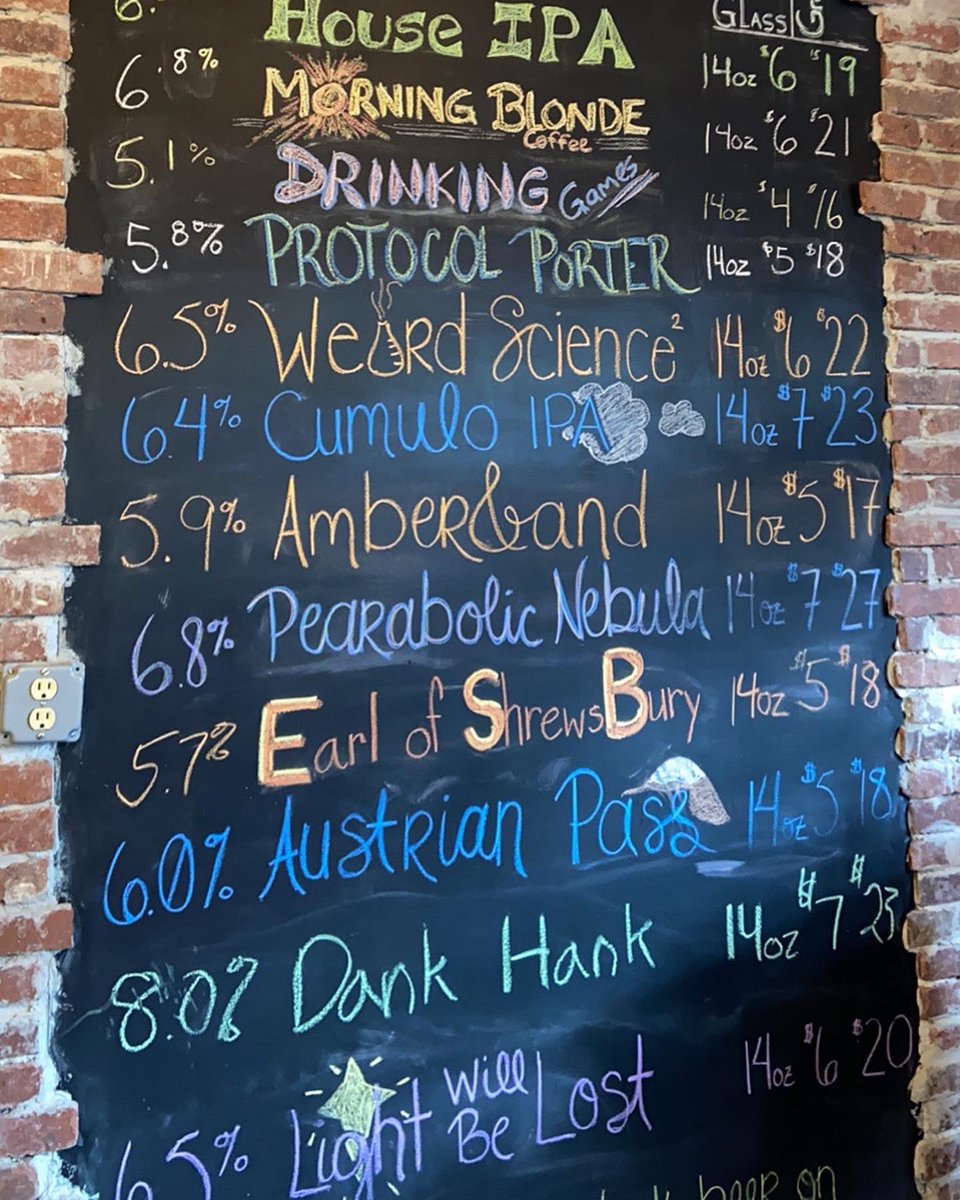 House IPA 14oz $6 $19
Glass
6.8% Morning Blonde Coffee 14oz $6 $21
5.1% Drinking Games 14oz $4 $16
5.8% Protocol Porter 14oz $5 $18
6.5% Weird Science² 14oz $6 $22
6.4% Cumulo IPA 14oz $7 $23
5.9% Amberland 14oz $5 $17
6.8% Pearabolic Nebula 14oz $7 $27
5.7% Earl of ShrewsBury 14oz $5 $18
6.0% Austrian Pass 14oz $5 $18
8.0% Dank Hank 14oz $7 $23
6.5% Light Will Be Lost 14oz $6 $20
beer on